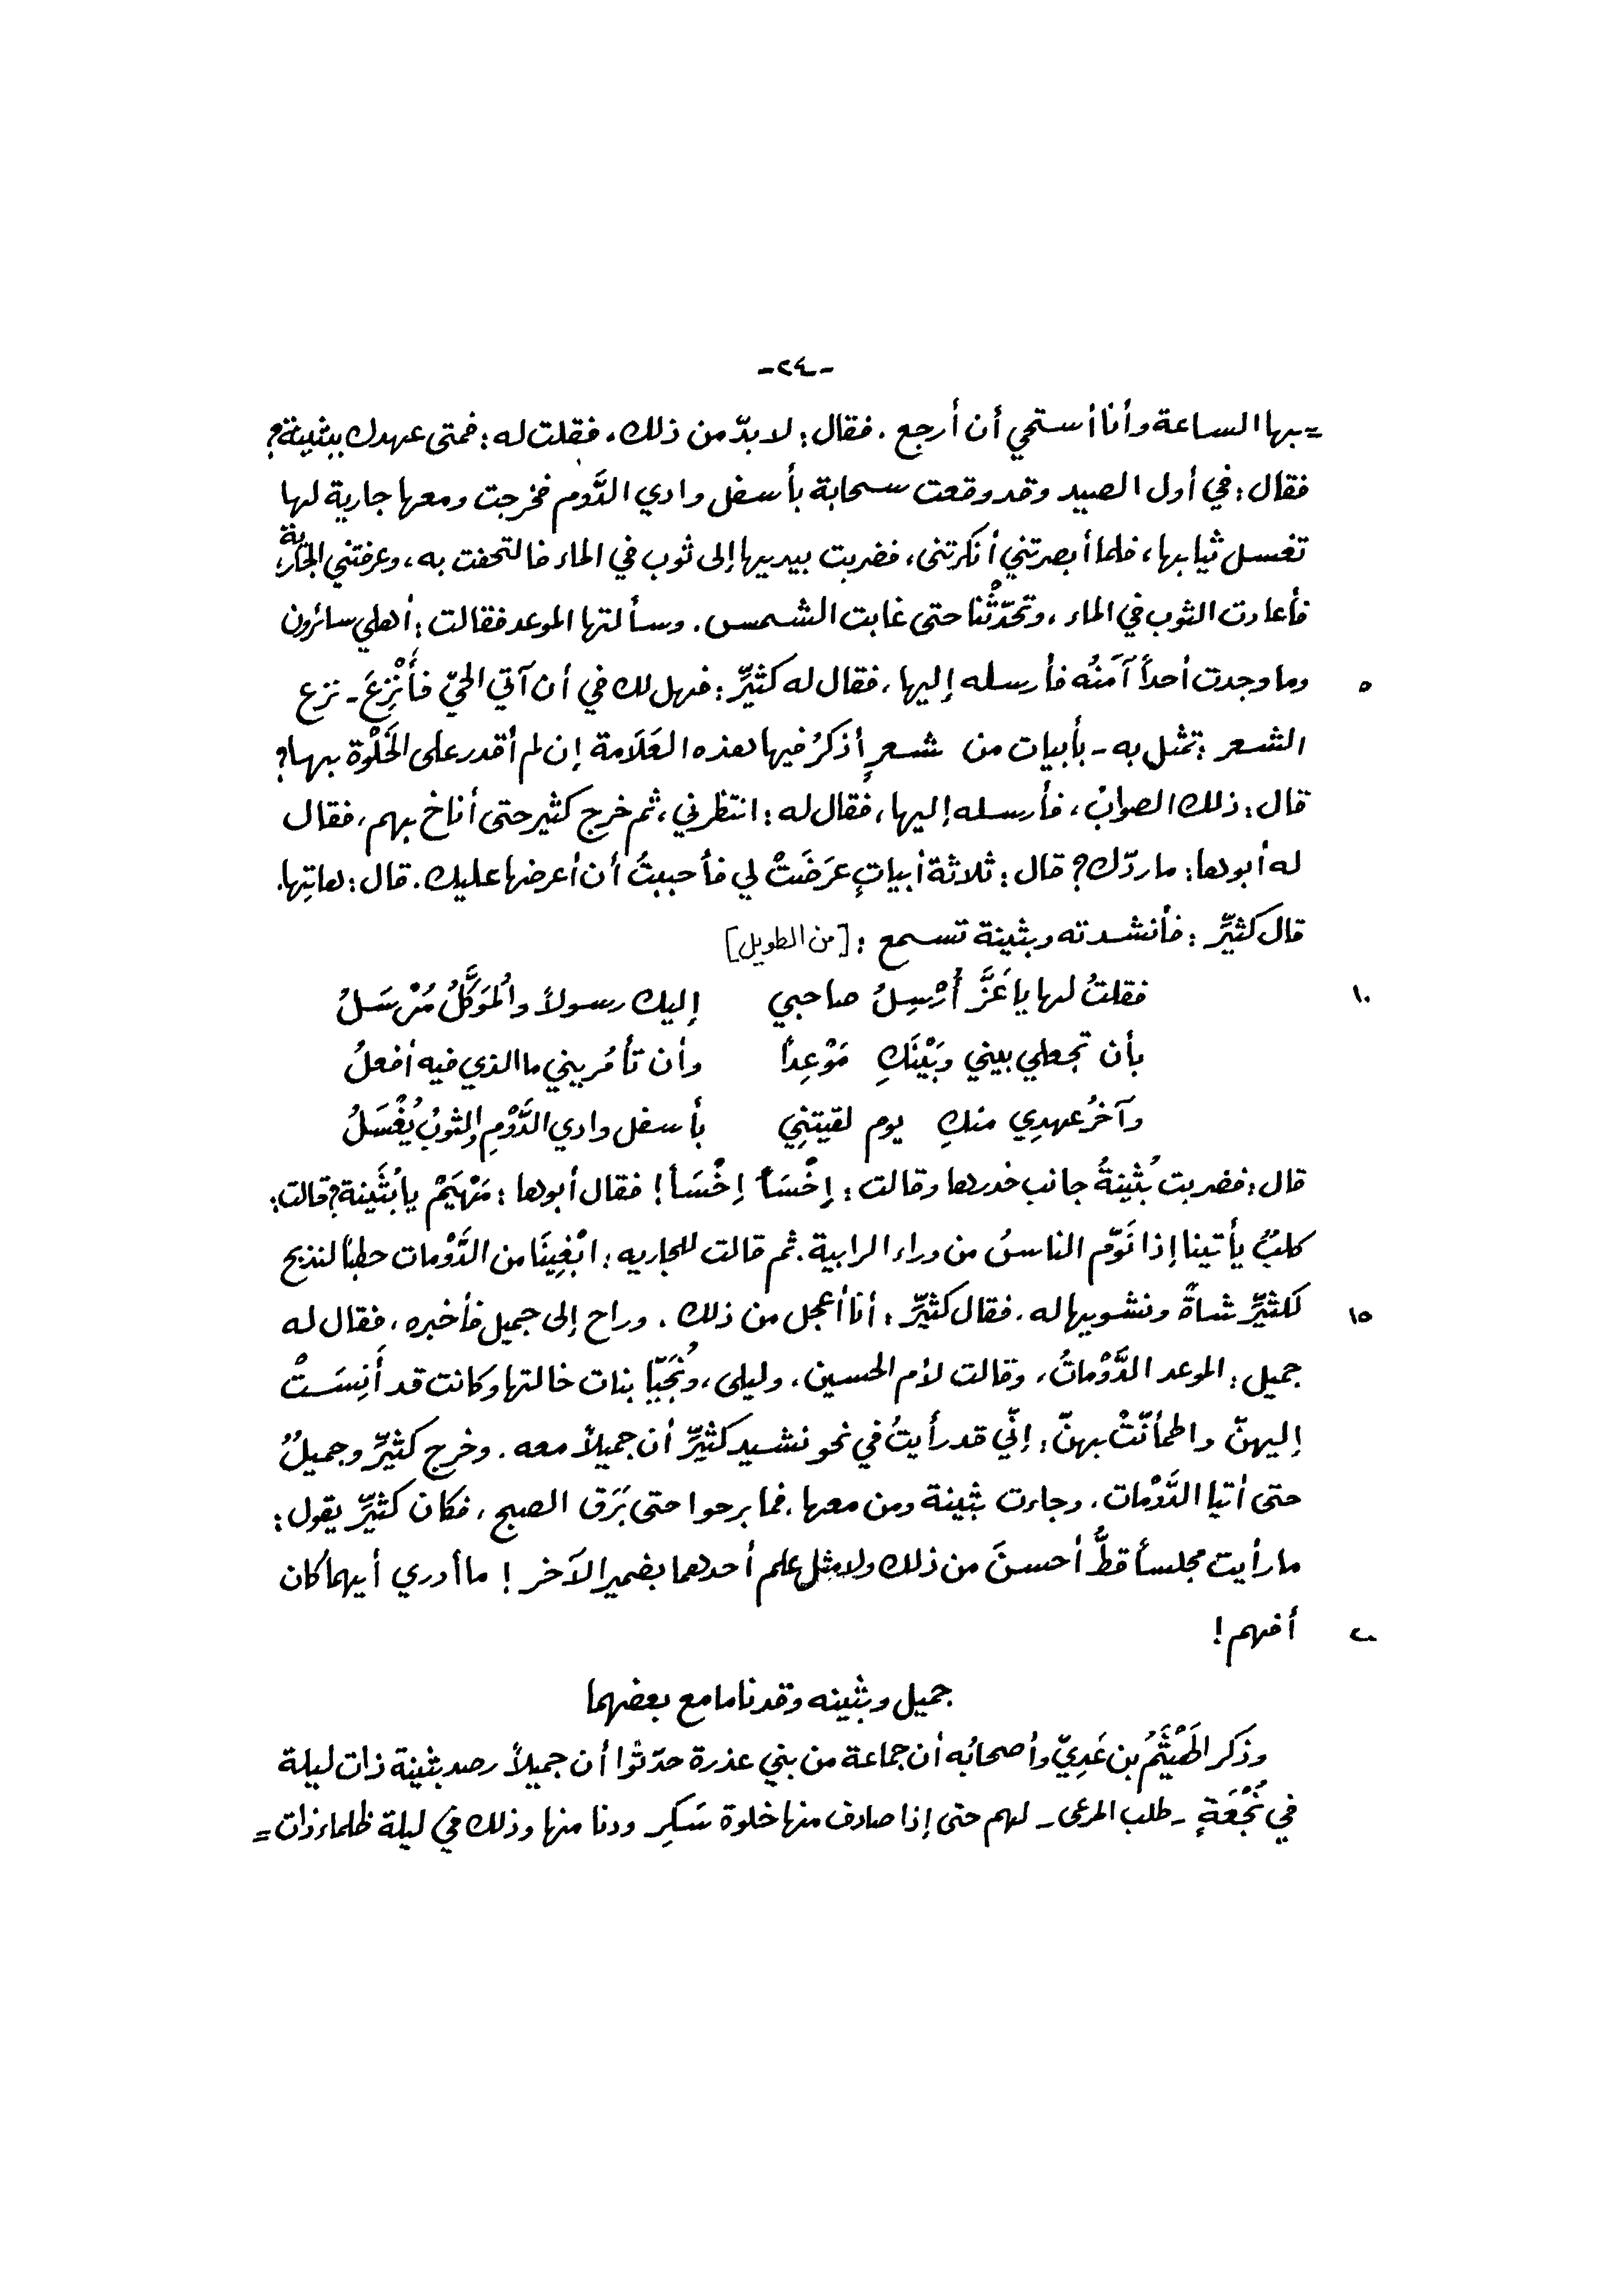 -٢٤-
= بها الساعة وأنا أستحي أن أرجع. فقال: لا بدّ من ذلك، فقلت له: فمتى عهدك ببثينة؟
فقال: في أول الصيد وقد وقعت سحابة بأسفل وادي الدَّوم فخرجت ومعها جارية لها
تغسل ثيابها، فلما أبصرتني أنكرتني، فضربت بيديها إلى ثوب في الماء فالتحفت به، وعرفتني الجارية،
فأعادت الثوب في الماء، وتحدّثْنا حتى غابت الشمس. وسألتها الموعد فقالت: أهلي سائرون
وما وجدت أحداً آمَنُه فأرسله إليها، فقال له كثيِّر: فهل لك في أن آتي الحيّ فأَنْزِعَ - نزع ٥
الشعر: تمثل به - بأبيات من شعرٍ أذكرُ فيها هذه العَلَامة إن لم أقدر على الخَلْوة بها؟
قال: ذلك الصوابُ، فأرسله إليها، فقال له: انتظرني، ثم خرج كثير حتى أناخ بهم، فقال
له أبوها: ما ردّك؟ قال: ثلاثة أبياتٍ عرَضَتْ لي فأحببتُ أن أعرضها عليك. قال: هاتِها.
قال كثيِّر: فأنشدته وبثينة تسمع: [من الطويل]
فقلتُ لها يا عَزَّ أُرْسِلُ صاحبي إليك رسولاً والمُوَكَّلُ مُرْسَلُ ١٠
بأن تجعلي بيني وبَيْنَكِ مَوْعِداً وأن تأمُريني ما الذي فيه أفعلُ
وآخرُ عهدِي منكِ يوم لقيتنِي بأسفل وادي الدَّوْمِ والثوبُ يُغْسَلُ
قال: فضربت بُثَينةُ جانب خدرها وقالت: إِخْسَأْ إِخْسَأ! فقال أبوها: مَهْيَمْ يا بُثَينة؟ قالت:
كلبٌ يأتينا إذا نَوّم الناسُ من وراء الرابية. ثم قالت للجاريه: ابْغِينَا من الدَّوْمات حطباً لنذبح
لكثيِّر شاةً ونشويها له. فقال كثيِّر: أنا أعجل من ذلك. وراح إلى جميل فأخبره، فقال له ١٥
جميل: الموعد الدَّوْماتُ، وقالت لأم الحسين، وليلى، ونُجَيّا بنات خالتها وكانت قد أَنِسَتْ
إليهنّ واطمأنّتْ بهنّ: إنّي قد رأيتُ في نحو نشيد كثيِّر أن جميلاً معه. وخرج كثيِّر وجميلٌ
حتى أتيا الدَّوْمات، وجاءت بثينة ومن معها، فما برحوا حتى بَرَق الصبح، فكان كثيِّر يقول:
ما رأيت مجلساً قطُّ أحسنَ من ذلك ولا مثل علم أحدهما بضمير الآخر! ما أدري أيهما كان
أفهم! ٢٠
جميل وبثينه وقد ناما مع بعضهما
وذكر الهَيْثَمُ بن عَدِيّ وأصحابُه أن جماعة من بني عذرة حدّثوا أن جميلاً رصد بثينة ذات ليلة
في نُجْعَةٍ - طلب المرعى - لهم حتى إذا صادف منها خلوة سَكِر ودنا منها وذلك في ليلة ظلماء ذات =